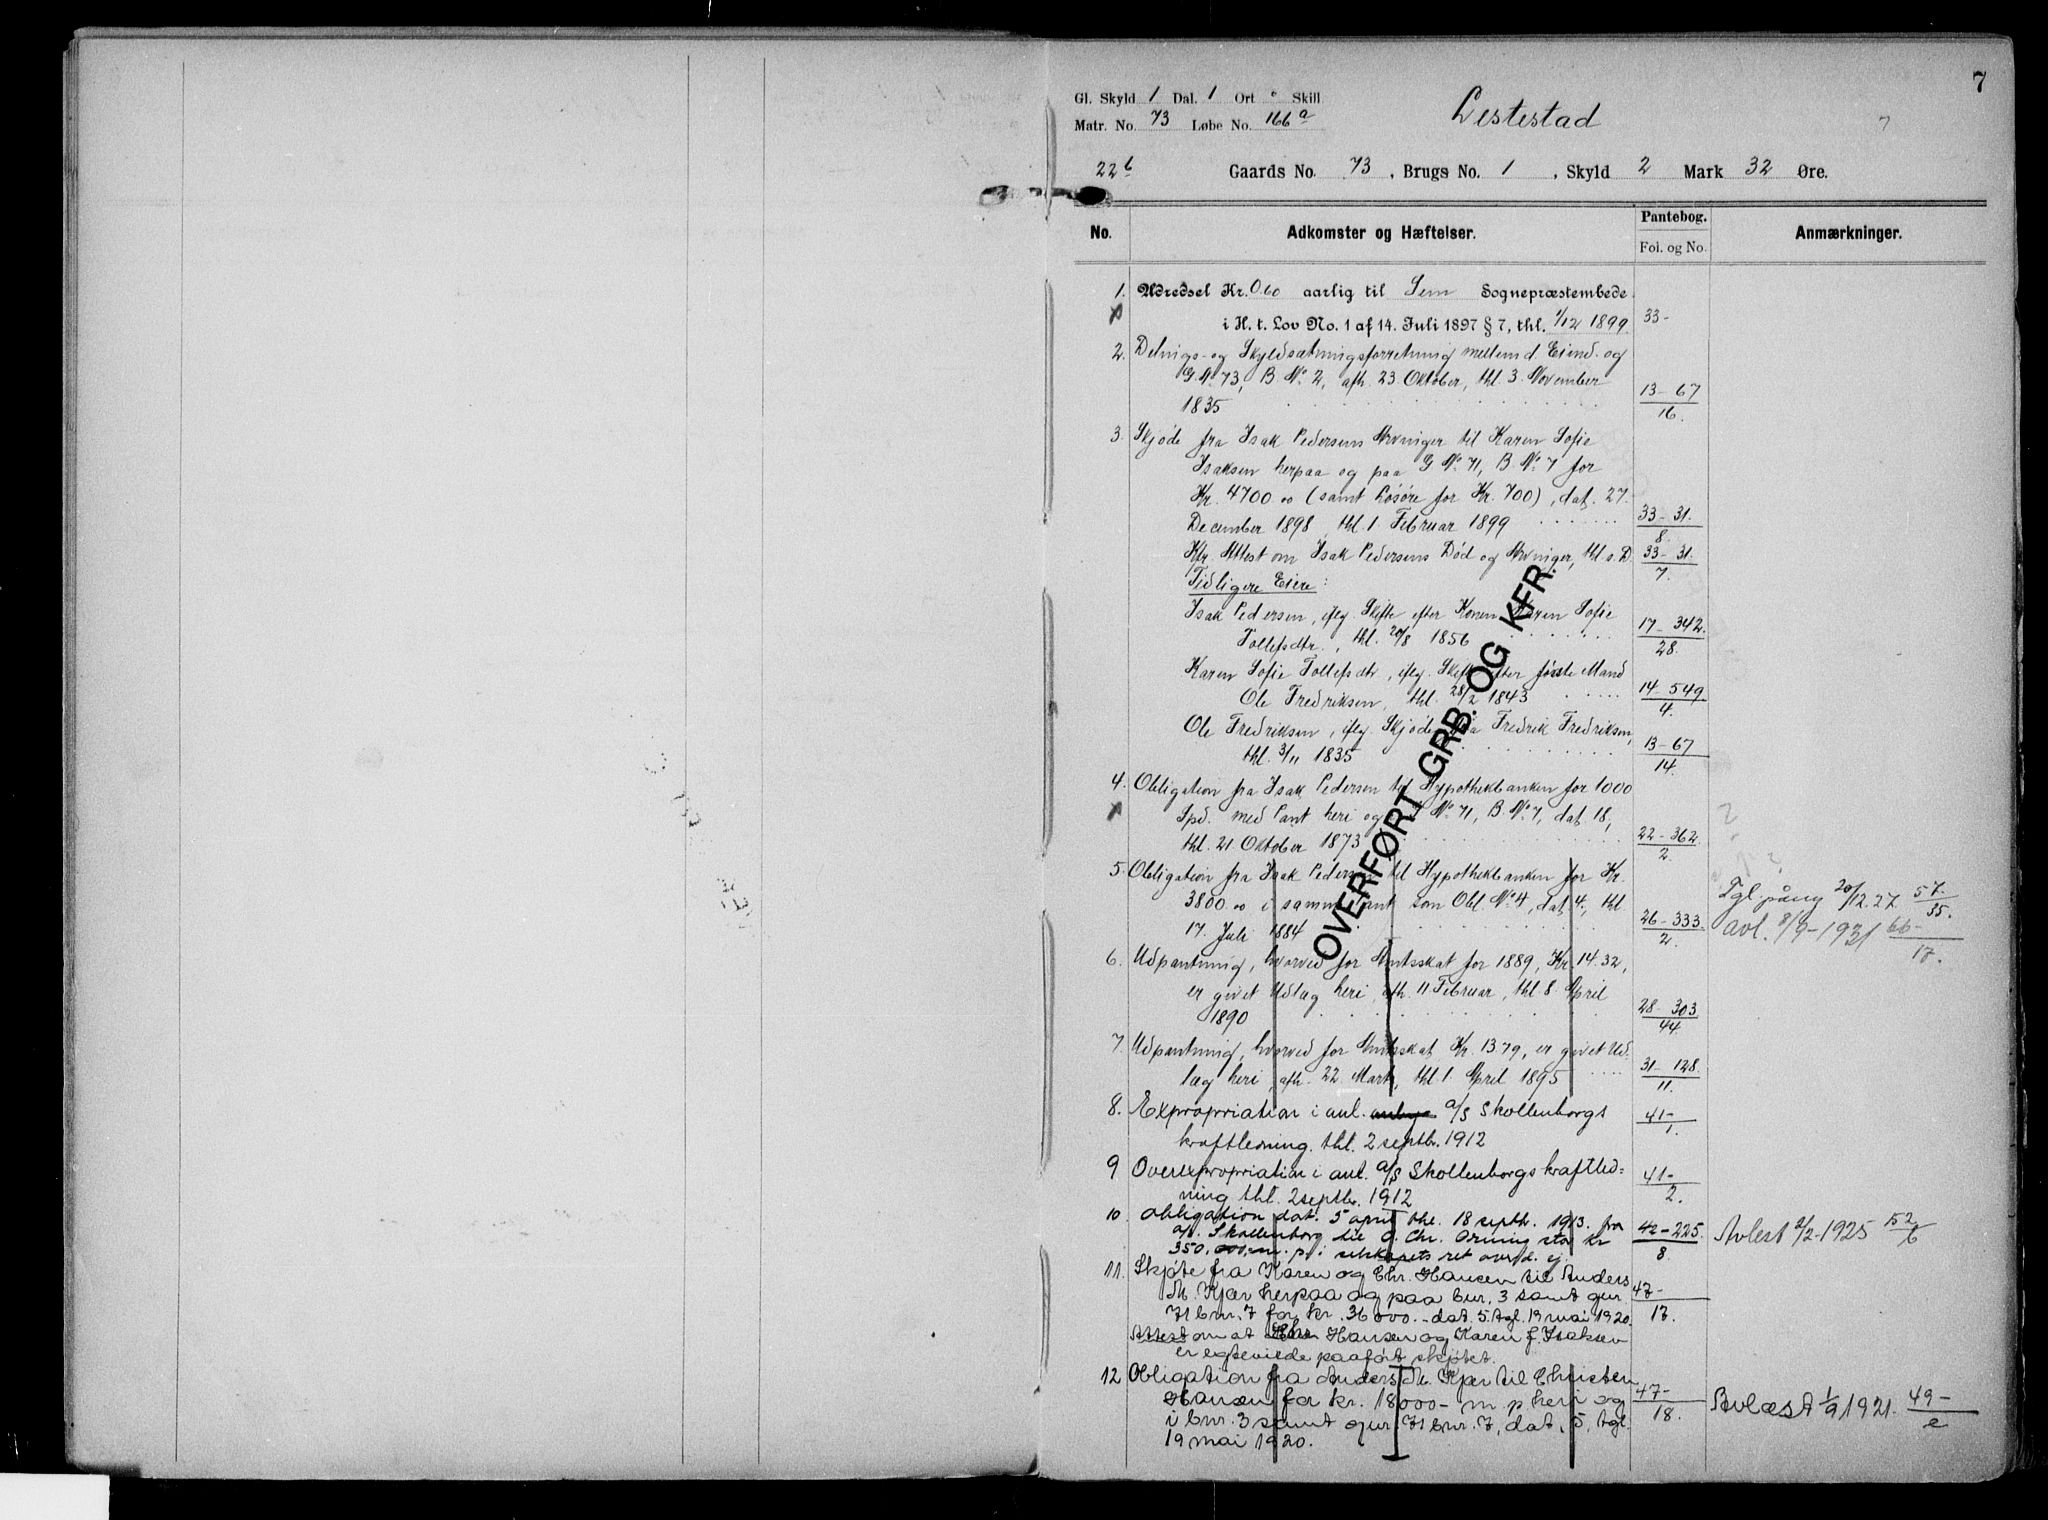 7
Gl. Skyld 1 Dal. 1 Ort " Skill
Matr. No. 73 Løbe No. 166 a
Lestestad
7
22 b Gaards No. 73, Brugs No. 1, Skyld 2 Mark 32 Øre.
No. Adkomster og Hæftelser. Pantebog. Fol. og No. Anmærkninger.
1. Udredsel Kr. 0.60 aarlig til Sem Sognepræstembede
i H. t. Lov No. 1 af 14. Juli 1897 § 7, thl. 1/12 1899 33-
2. Delnigs- og Skyldsætningsforretning mellem d. Eiend. og
G. No. 73, B. No. 2, afh. 23. Oktober, thl. 3. November
1835 13-67/16.
3. Skjøde fra Isak Pedersens Arvinger til Karen Sofie
Isaksen herpaa og paa G. No. 71, B. No. 7 for
Kr. 4700 00 (samt Løsøre for Kr. 700), dat. 27.
December 1898, thl. 1. Februar 1899 33-31./8.
Attest om Isak Pedersens Død og Arvinger, thl. s. D. 33-31./7.
Tidligere Eiere:
Isak Pedersen, iflg. Skifte efter Konen Karen Sofie
Tollefsdtr., thl. 20/8 1856 17-342./28.
Karen Sofie Tollefsdtr, iflg. Skifte efter første Mand
Ole Fredriksen, thl. 28/2 1843 14-549/4.
Ole Fredriksen, iflg. Skjøde fra Fredrik Fredriksen,
thl. 3/11 1835 13-67/14.
4. Obligation fra Isak Pedersen til Hypothekbanken for 1000
Spd. med Pant heri og i G. No. 71, B. No. 7, dat. 18,
thl. 21. Oktober 1873 22-362./2.
5. Obligation fra Isak Pedersen til Hypothekbanken for Kr.
3800 00 i samme Pant som Obl. No. 4, dat. 4., thl.
17. Juli 1884 26-333./2.
Tgl. påny 20/12.27. 57./35.
Avl. 8/9-1931 66-/17.
6. Udpantning, hvorved for Amtsskat for 1889, Kr. 14.32,
er givet Udlæg heri, afh. 11 Februar, thl. 8. April
1890 28-303/44.
7. Udpantning, hvorved for Amtsskat Kr. 13.79, er givet Ud-
læg heri, afh. 22 Marts, thl. 1. April 1895 31-128./11.
8. Expropriation i anl. a/s Skollenborgs 41-/1.
kraftledning. thl. 2 septbr. 1912
9 Overexpropriation i anl. a/s Skollenborgs kraftled=
ning thl. 2 septbr. 1912 41-/2.
10 Obligation dat. 5 april thl. 18 septbr. 1913. fra
a/s. Skollenborg til O. Chr. Orning stor kr 42-225./8.
350,000,00. p. i selskapets ret overd. ej.
Avlest 2/2-1925 52/6
11. Skjøte fra Karen og Chr. Hansen til Anders
M. Kjær herpaa og paa bnr. 3 samt gnr. 47-/17.
71 bnr. 7 for kr. 36 000.- dat. 5. tgl. 19 mai 1920.
Attest om at Chr. Hansen og Karen f. Isaksen
er egteviede paaført skjøtet.
12 Obligation fra Anders M. Kjær til Christen
Hansen for kr. 18 000- m. p. heri og 47-/18.
i bnr. 3 samt gnr. 71 bnr. 7, dat. 5. tgl.
19 mai 1920.
Avlæst 1/9 1921. 49-/2
OVERFØRT GRB. OG KFR.